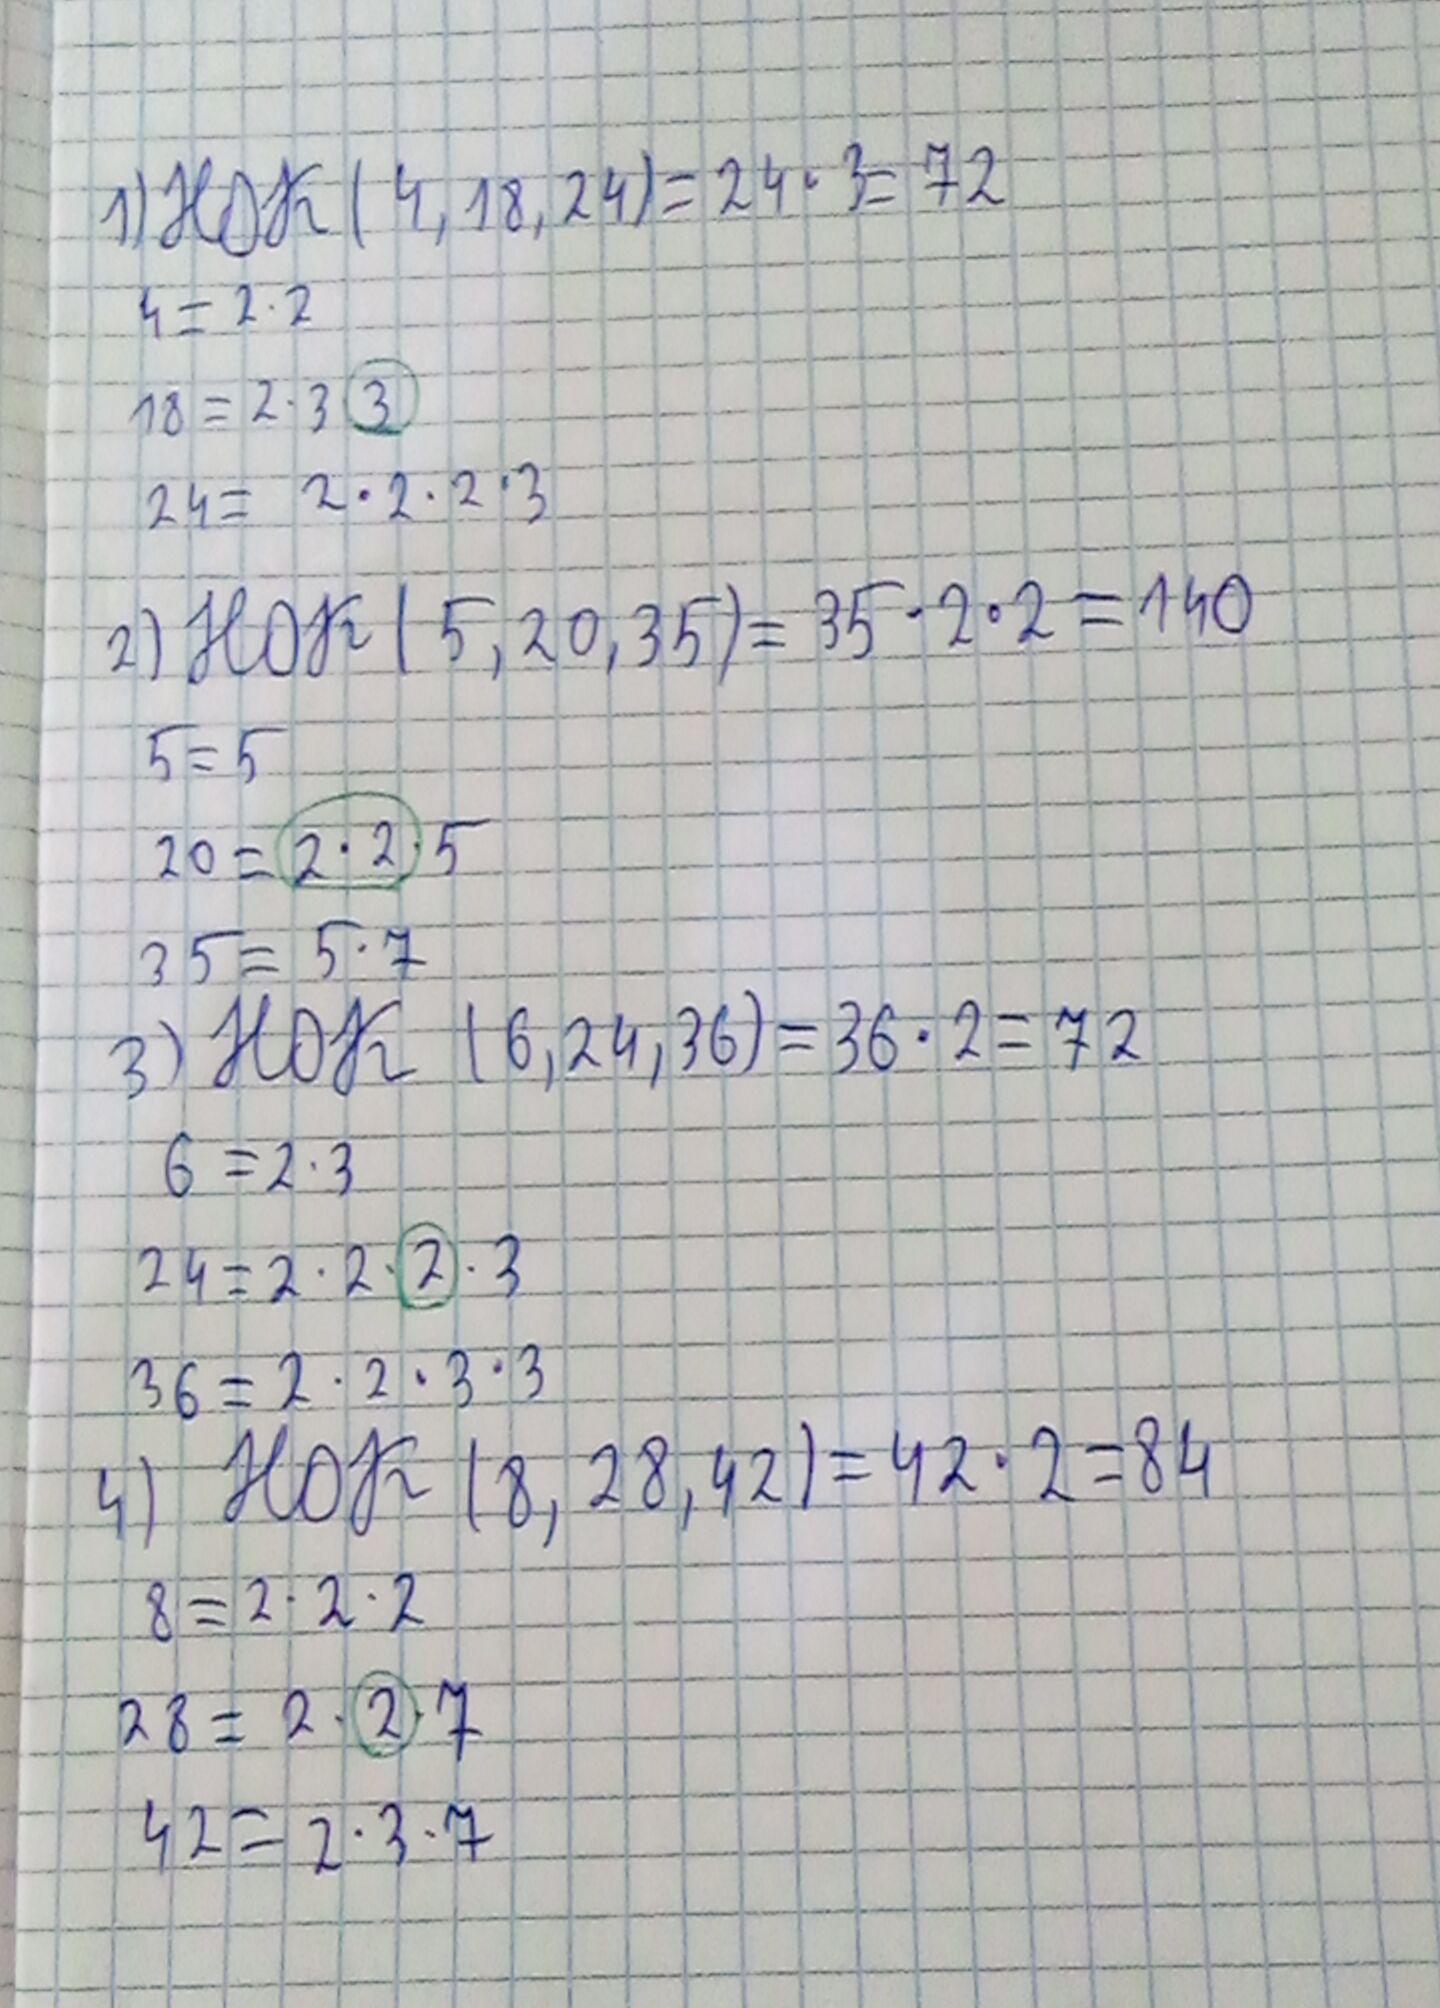 1) НОК (4, 18, 24) = 24 · 3 = 72
4 = 2 · 2
18 = 2 · 3 3
24 = 2 · 2 · 2 · 3
2) НОК (5, 20, 35) = 35 · 2 · 2 = 140
5 = 5
20 = 2 · 2 · 5
35 = 5 · 7
3) НОК (6, 24, 36) = 36 · 2 = 72
6 = 2 · 3
24 = 2 · 2 · 2 · 3
36 = 2 · 2 · 3 · 3
4) НОК (8, 28, 42) = 42 · 2 = 84
8 = 2 · 2 · 2
28 = 2 · 2 · 7
42 = 2 · 3 · 7